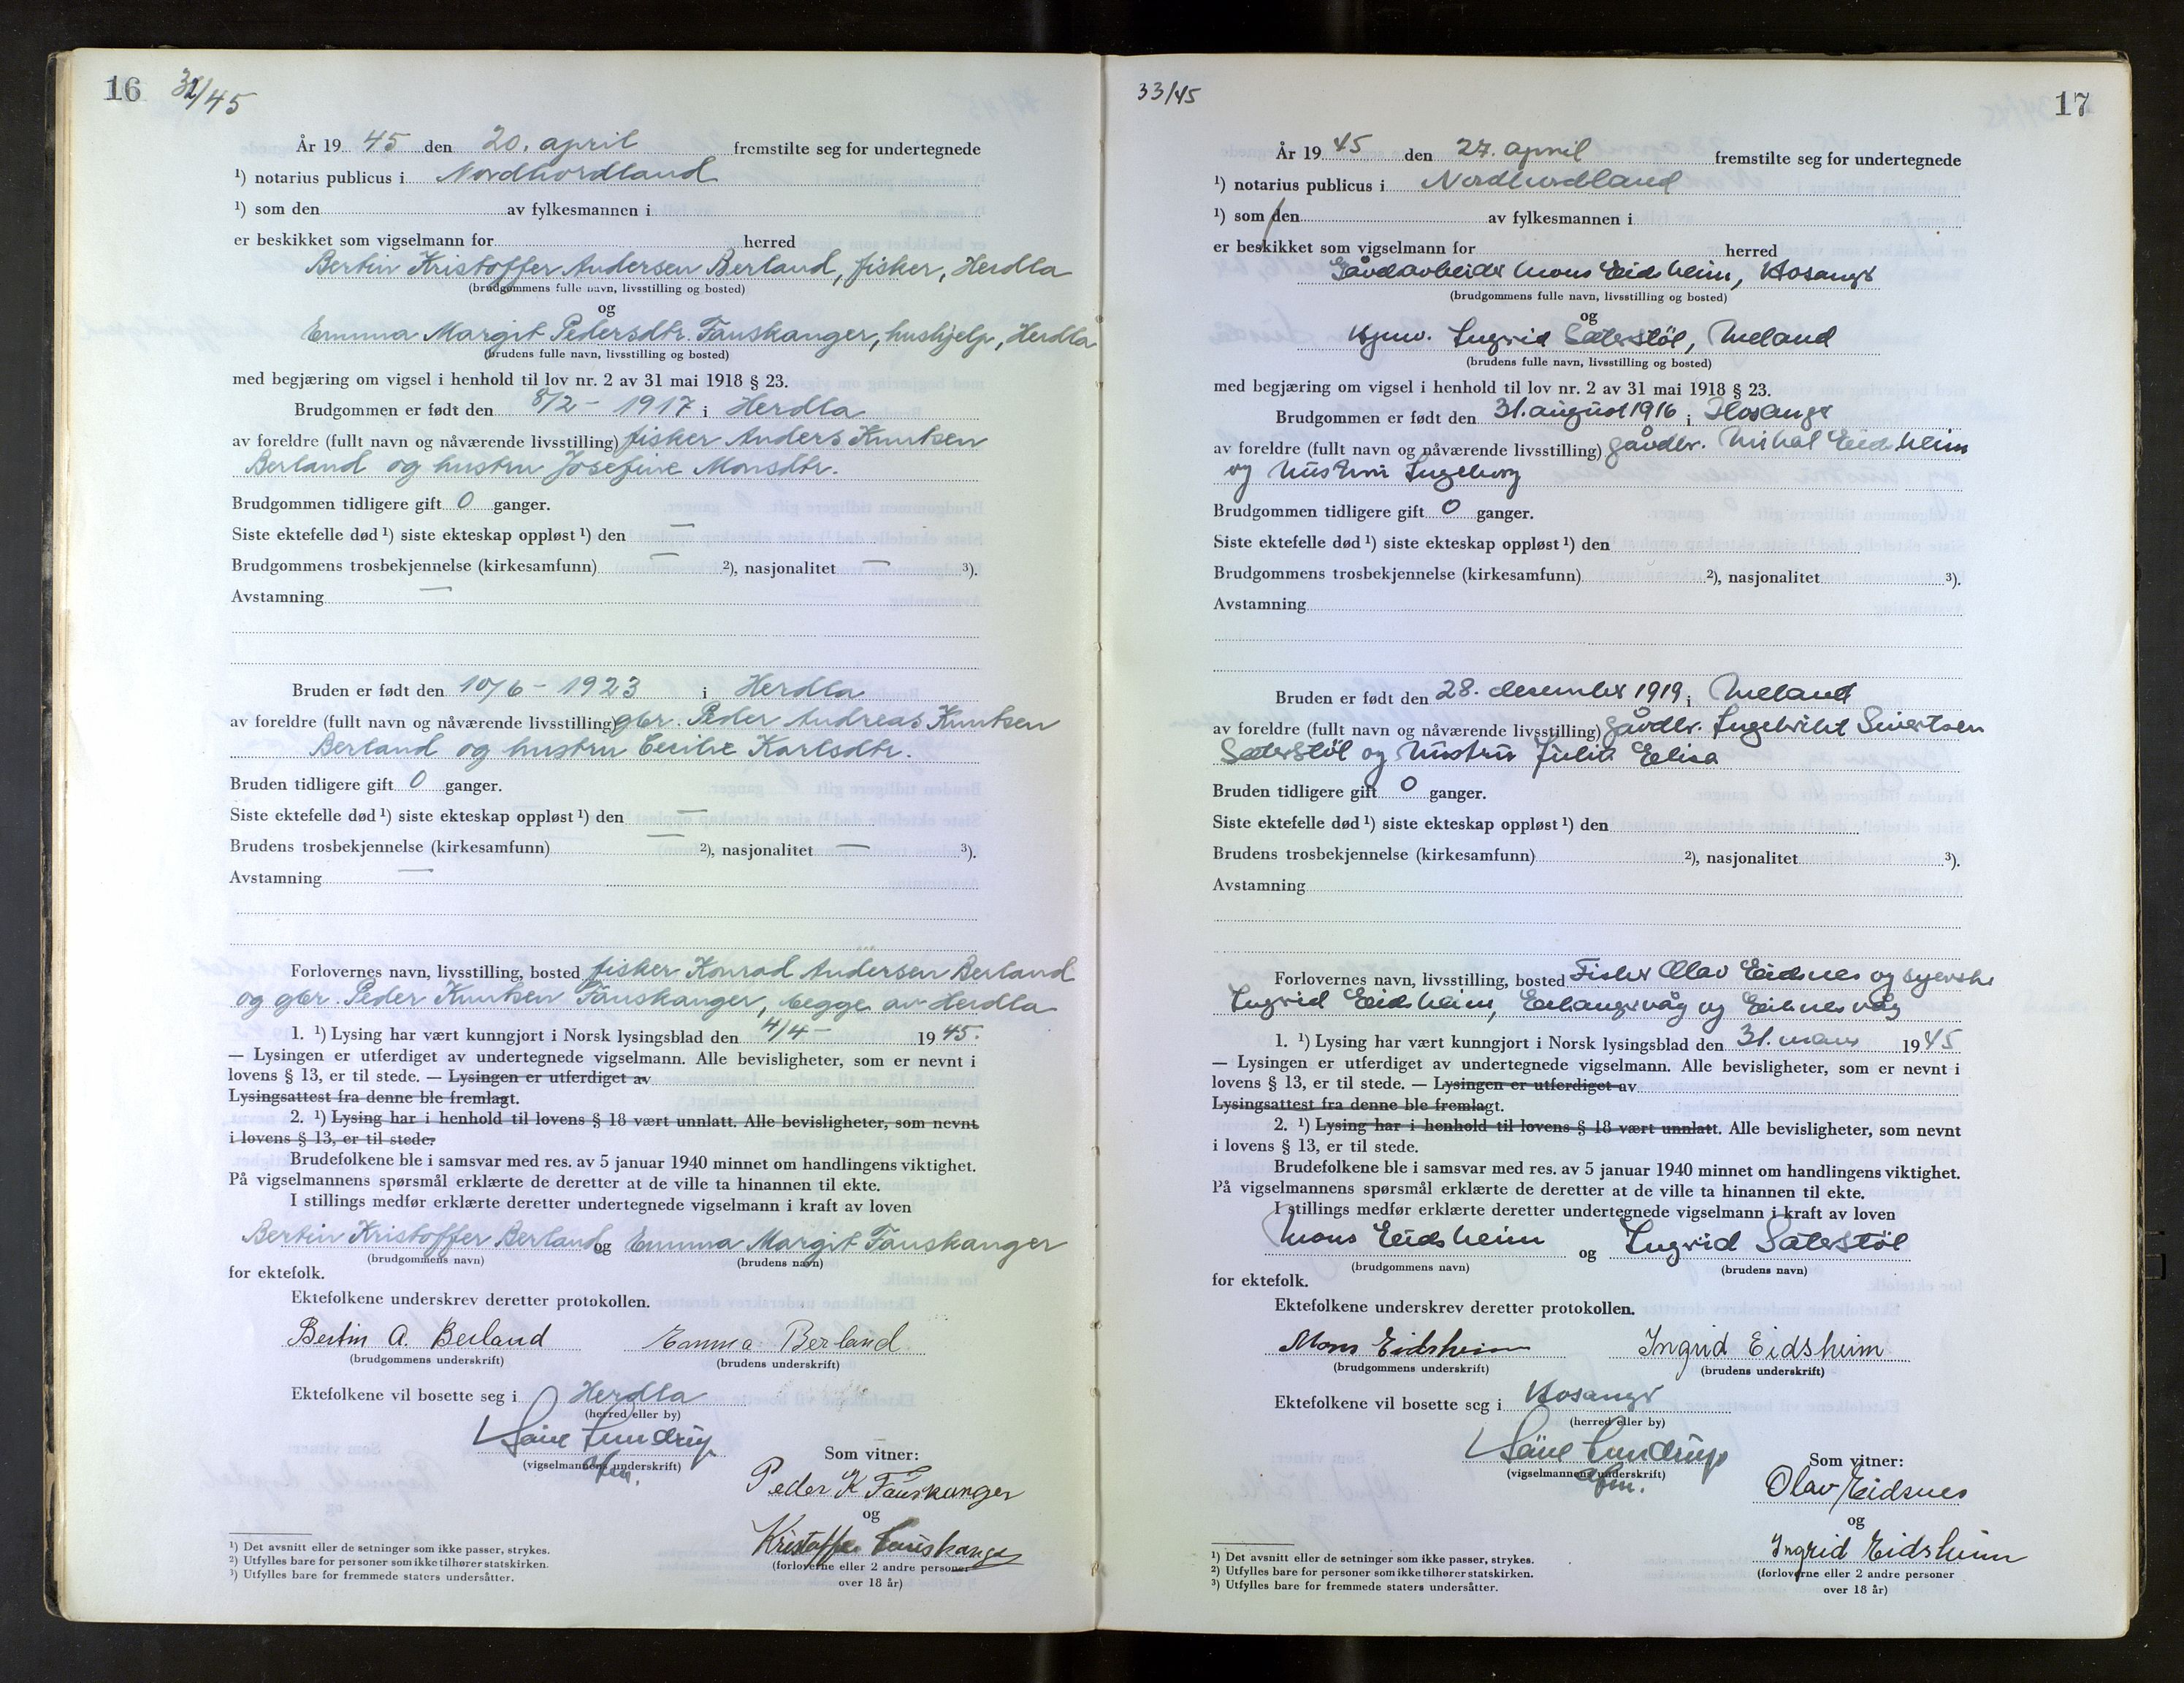 16 32/45
År 19 45 den 20. april fremstilte seg for undertegnede
¹) notarius publicus i Nordhordland
¹) som den av fylkesmannen i
er beskikket som vigselmann for herred
Bertin Kristoffer Andersen Berland, fisker, Herdla
(brudgommens fulle navn, livsstilling og bosted)
og
Emma Margit Pedersdtr. Fauskanger, hushjelp, Herdla
(brudens fulle navn, livsstilling og bosted)
med begjæring om vigsel i henhold til lov nr. 2 av 31 mai 1918 § 23.
Brudgommen er født den 8/2 - 1917 i Herdla
av foreldre (fullt navn og nåværende livsstilling) fisker Anders Knutsen
Berland og hustru Josefine Monsdtr.
Brudgommen tidligere gift 0 ganger.
Siste ektefelle død ¹) siste ekteskap oppløst ¹) den —
Brudgommens trosbekjennelse (kirkesamfunn) — ²), nasjonalitet — ³).
Avstamning —
Bruden er født den 10/6 - 1923 i Herdla
av foreldre (fullt navn og nåværende livsstilling) gbr. Peder Andreas Knutsen
Berland og hustru Cecilie Karlsdtr.
Bruden tidligere gift 0 ganger.
Siste ektefelle død ¹) siste ekteskap oppløst ¹) den —
Brudens trosbekjennelse (kirkesamfunn) — ²), nasjonalitet — ³).
Avstamning —
Forlovernes navn, livsstilling, bosted fisker Konrad Andersen Berland
og gbr. Peder Knutsen Fauskanger, begge av Herdla
1. ¹) Lysing har vært kunngjort i Norsk lysingsblad den 4/4 - 19 45.
— Lysingen er utferdiget av undertegnede vigselmann. Alle bevisligheter, som er nevnt i
lovens § 13, er til stede. — Lysingen er utferdiget av
Lysingsattest fra denne ble fremlagt.
2. ¹) Lysing har i henhold til lovens § 18 vært unnlatt. Alle bevisligheter, som nevnt
i lovens § 13, er til stede.
Brudefolkene ble i samsvar med res. av 5 januar 1940 minnet om handlingens viktighet.
På vigselmannens spørsmål erklærte de deretter at de ville ta hinannen til ekte.
I stillings medfør erklærte deretter undertegnede vigselmann i kraft av loven
Bertin Kristoffer Berland og Emma Margit Fauskanger
(brudgommens navn) (brudens navn)
for ektefolk.
Ektefolkene underskrev deretter protokollen.
Bertin A. Berland Emma Berland
(brudgommens underskrift) (brudens underskrift)
Ektefolkene vil bosette seg i Herdla
(herred eller by)
(vigselmannens underskrift)
Som vitner:
Peder K Fauskanger
og
Kristoffer Fauskanger
(forloverne eller 2 andre personer
over 18 år)
¹) Det avsnitt eller de setninger som ikke passer, strykes.
²) Utfylles bare for personer som ikke tilhører statskirken.
³) Utfylles bare for fremmede staters undersåtter.
33/45 17
År 19 45 den 27. april fremstilte seg for undertegnede
¹) notarius publicus i Nordhordland
¹) som den av fylkesmannen i
er beskikket som vigselmann for herred
Gårdarbeider Mons Eidsheim, Hosanger
(brudgommens fulle navn, livsstilling og bosted)
og
Ingrid Sæterstøl, Meland
(brudens fulle navn, livsstilling og bosted)
med begjæring om vigsel i henhold til lov nr. 2 av 31 mai 1918 § 23.
Brudgommen er født den 31. august 1916 i Hosanger
av foreldre (fullt navn og nåværende livsstilling) gårdbr. Mikal Eidsheim
og hustru Ingeborg
Brudgommen tidligere gift 0 ganger.
Siste ektefelle død ¹) siste ekteskap oppløst ¹) den
Brudgommens trosbekjennelse (kirkesamfunn) ²), nasjonalitet ³).
Avstamning
Bruden er født den 28. desember 1919 i Meland
av foreldre (fullt navn og nåværende livsstilling) gårdbr. Ingebrikt Sivertsen
Sæterstøl og hustru Julie Elisa
Bruden tidligere gift 0 ganger.
Siste ektefelle død ¹) siste ekteskap oppløst ¹) den
Brudens trosbekjennelse (kirkesamfunn) ²), nasjonalitet ³).
Avstamning
Forlovernes navn, livsstilling, bosted Fisker Olav Eidsnes og syerske
Ingrid Eidsheim, Eidsnes våg
1. ¹) Lysing har vært kunngjort i Norsk lysingsblad den 31. mars 19 45
— Lysingen er utferdiget av undertegnede vigselmann. Alle bevisligheter, som er nevnt i
lovens § 13, er til stede. — Lysingen er utferdiget av
Lysingsattest fra denne ble fremlagt.
2. ¹) Lysing har i henhold til lovens § 18 vært unnlatt. Alle bevisligheter, som nevnt
i lovens § 13, er til stede.
Brudefolkene ble i samsvar med res. av 5 januar 1940 minnet om handlingens viktighet.
På vigselmannens spørsmål erklærte de deretter at de ville ta hinannen til ekte.
I stillings medfør erklærte deretter undertegnede vigselmann i kraft av loven
Mons Eidsheim og Ingrid Sæterstøl
(brudgommens navn) (brudens navn)
for ektefolk.
Ektefolkene underskrev deretter protokollen.
Mons Eidsheim Ingrid Eidsheim
(brudgommens underskrift) (brudens underskrift)
Ektefolkene vil bosette seg i Hosanger
(herred eller by)
(vigselmannens underskrift)
Som vitner:
Olav Eidsnes
og
Ingrid Eidsheim
(forloverne eller 2 andre personer
over 18 år)
¹) Det avsnitt eller de setninger som ikke passer, strykes.
²) Utfylles bare for personer som ikke tilhører statskirken.
³) Utfylles bare for fremmede staters undersåtter.